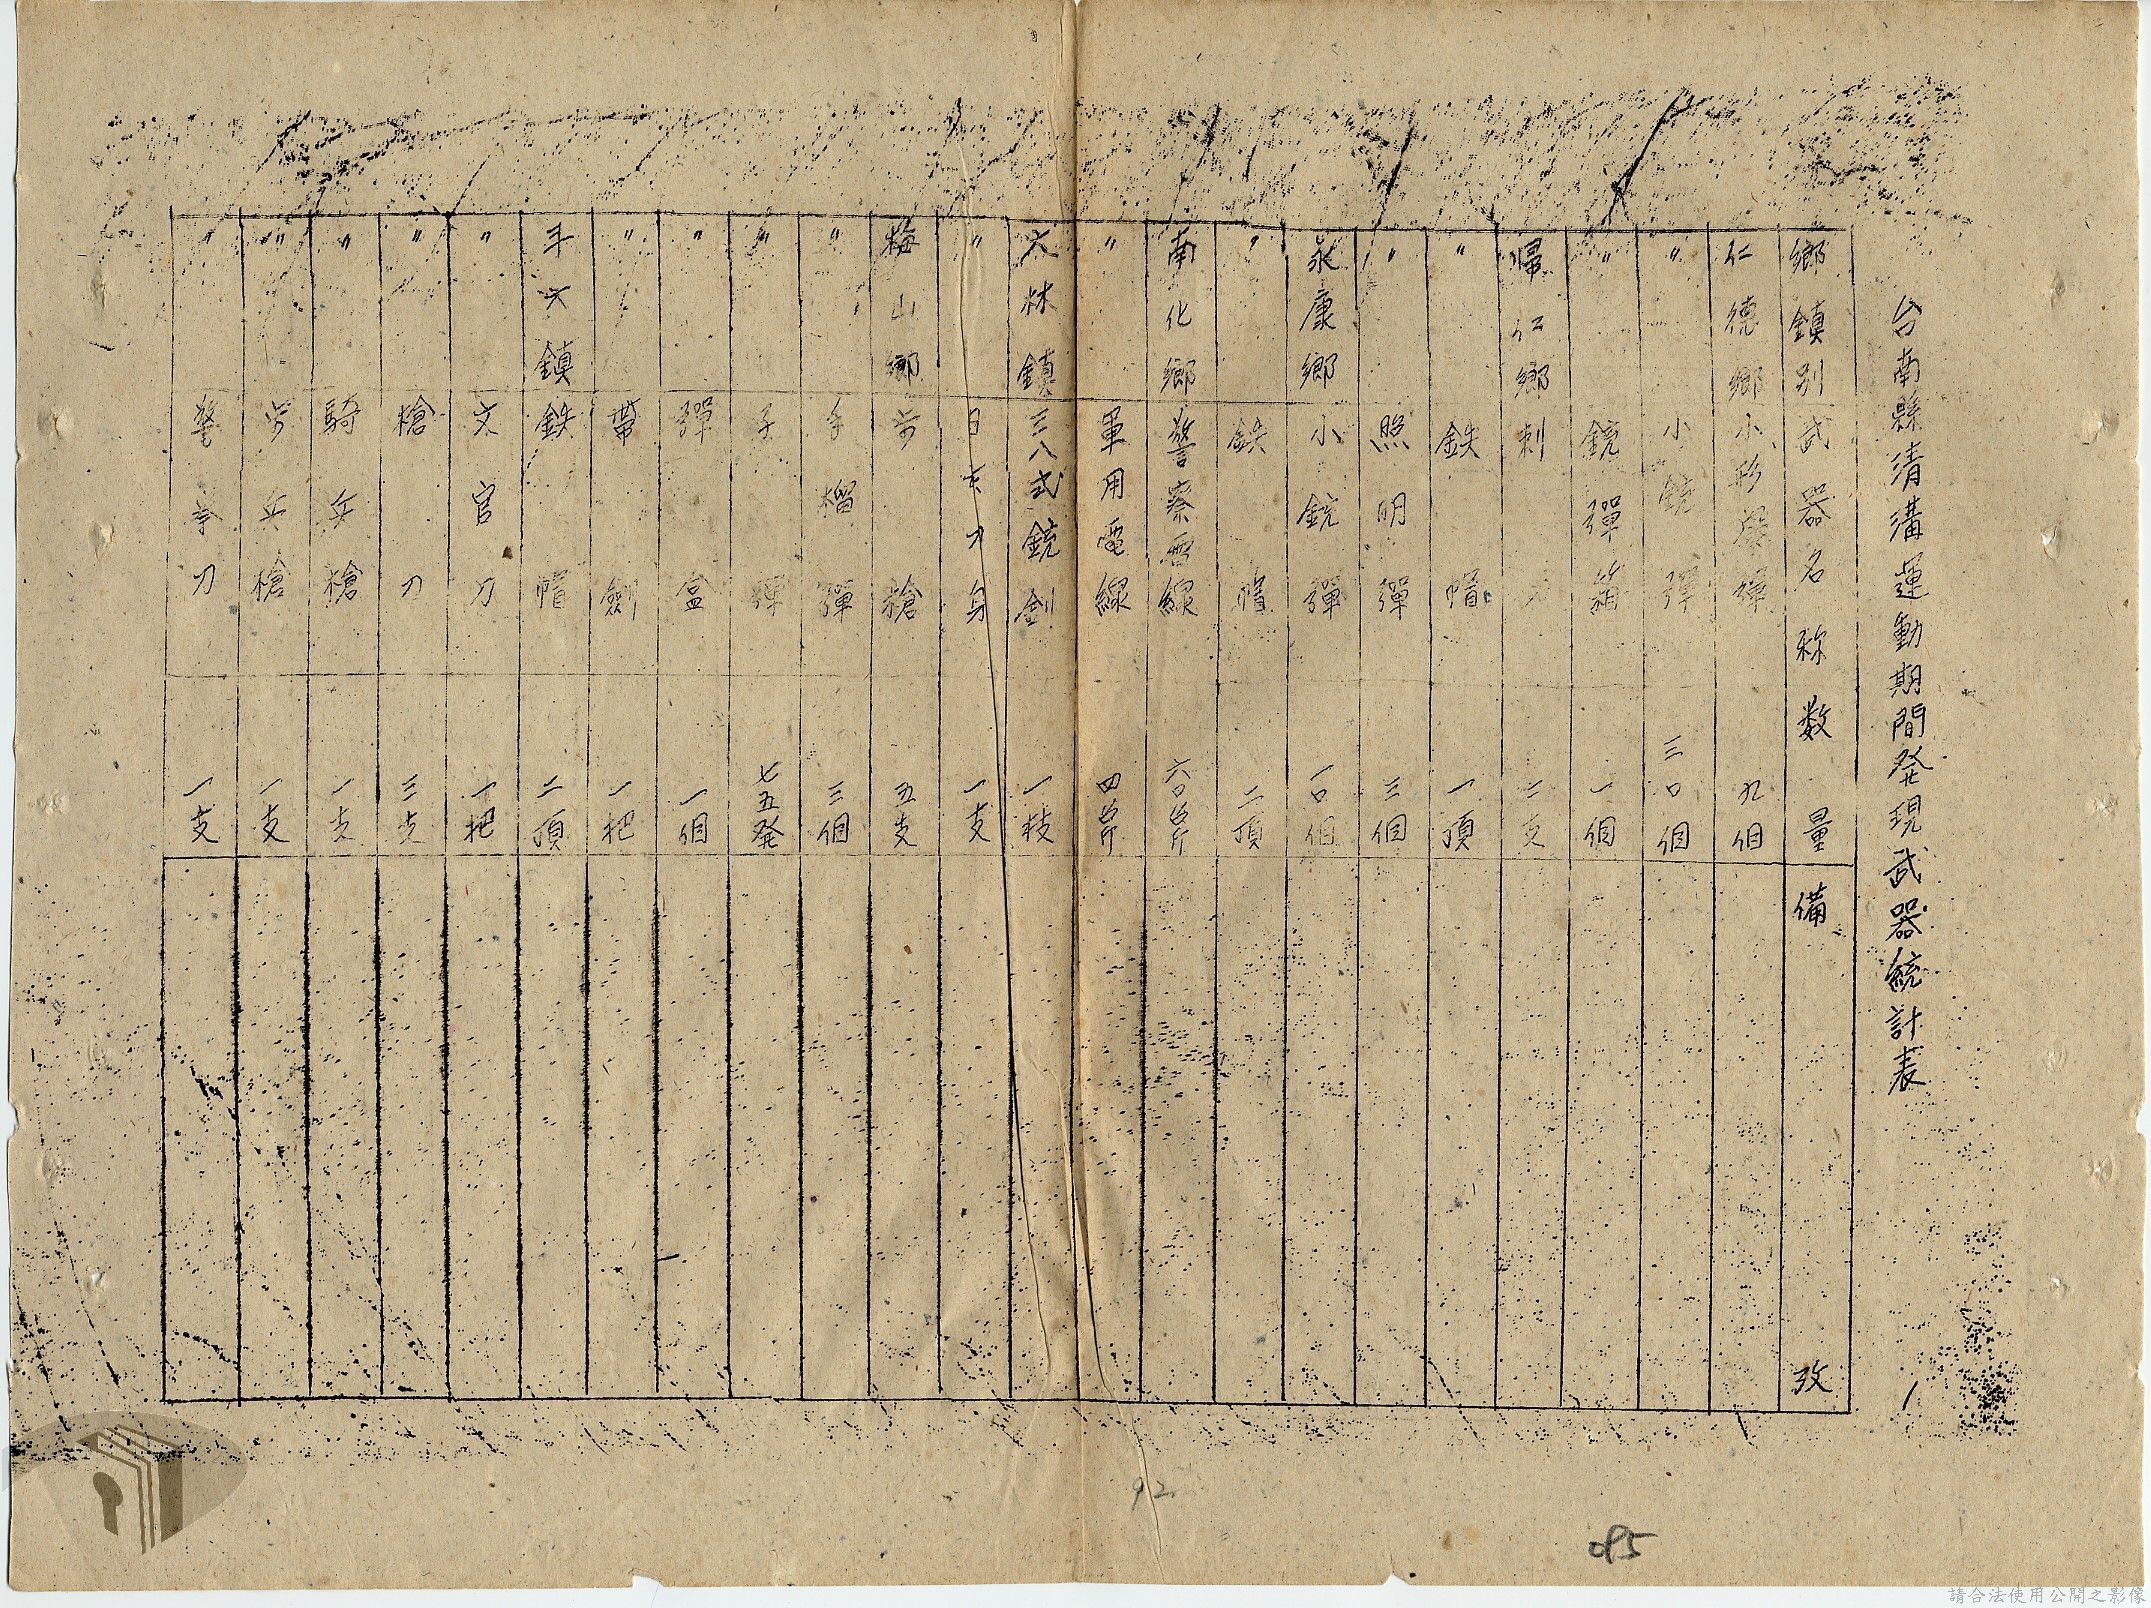 台南縣清溝運動期間発現武器統計表
鄉鎮別 武器名称 数量 備攷
仁德鄉 小形爆弾 九個
〃 小銃弾 三〇個
〃 銃彈箱 一個
帰仁鄉 刺刀 二支
〃 鉄帽 一頂
〃 照明彈 三個
永康鄉 小銃彈 一〇個
〃 鉄帽 二頂
南化鄉 警察電線 六〇台斤
〃 軍用電線 四台斤
大林鎮 三八式銃剑 一枝
〃 日本刀身 一支
梅山鄉 步槍 五支
〃 手榴彈 三個
〃 子彈 七五発
〃 彈盒 一個
〃 帶劍 一把
鎮 鉄帽 二頂
〃 文官刀 一把
〃 槍刀 三支
〃 騎兵槍 一支
〃 步兵槍 一支
〃 警察刀 一支
92
085
請合法使用公開之影像